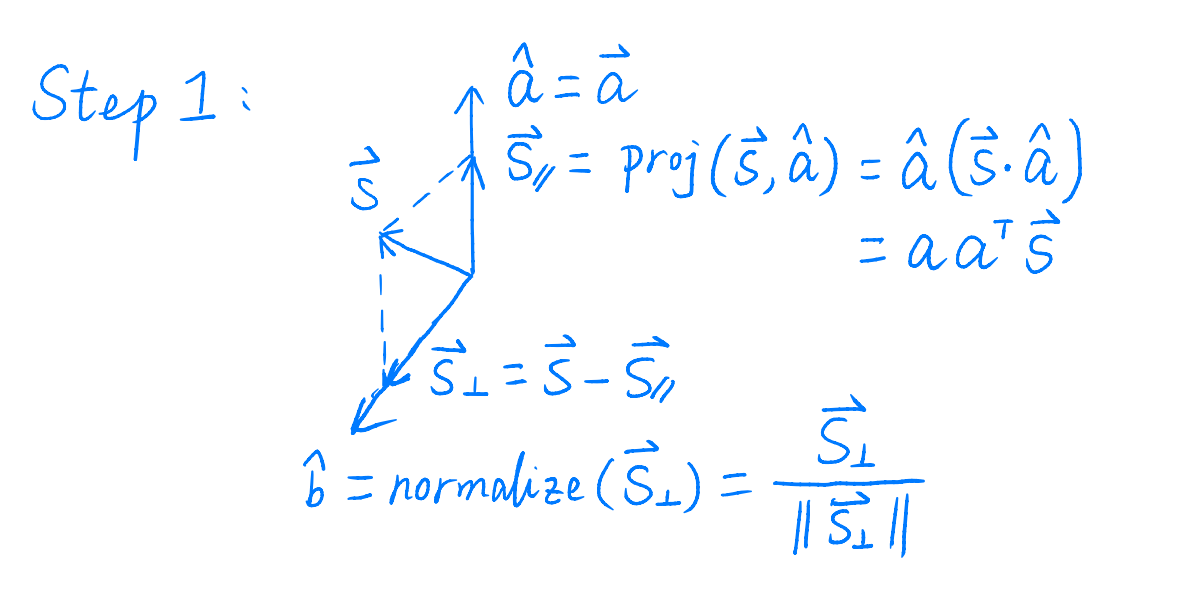 Step 1:
â = a⃗
s⃗
s⃗∥ = proj(s⃗, â) = â(s⃗·â)
= a aᵀ s⃗
s⃗⊥ = s⃗ − s⃗∥
b̂ = normalize(s⃗⊥) = s⃗⊥ / ‖s⃗⊥‖